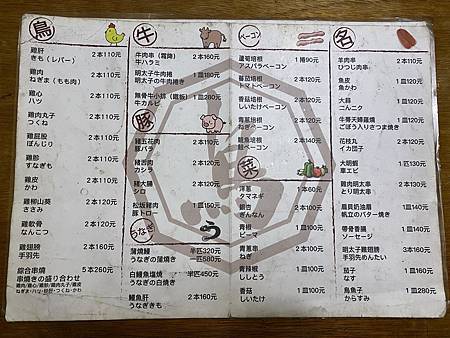 鳥
雞肝 2本110元
きも(レバー)
雞肉 2本110元
ねぎま(もも肉)
雞心 2本110元
ハツ
雞肉丸子 2本110元
つくね
雞屁股 2本110元
ぼんじり
雞胗 2本110元
すなぎも
雞皮 2本110元
かわ
雞柳山葵 2本110元
ささみ
雞軟骨 2本110元
なんこつ
雞翅膀 2本110元
手羽先
綜合串燒 5本260元
串焼きの盛り合わせ
牛
牛肉串(霜降) 2本160元
牛ハラミ
明太子牛肉捲 2本180元
明太子の牛肉巻き
無骨牛小排(鐵板) 1皿280元
牛カルビ
豚
豬五花肉 2本120元
豚バラ
豬舌肉 2本120元
カシラ
豬大腸 2本120元
シロ
松坂豬肉 2本120元
豚トロー
うなぎ
蒲燒鰻 半匹320元
うなぎの蒲焼き 一匹580元
白鰻魚鹽燒 半匹450元
うなぎの白焼き
鰻魚肝 2本160元
うなぎきも
ベーコン
蘆荀培根 1捲90元
アスパラベーコン
蕃茄培根 2本110元
トマトベーコン
香菇培根 2本110元
しいたけベーコン
青蔥培根 2本110元
ねぎベーコン
鱈魚培根 2本120元
菜
洋蔥 1本60元
タマネギ
銀杏 2本100元
ぎんなん
青椒 2本100元
ピーマ
青蔥串 2本100元
ねぎ
青辣椒 2本100元
ししとう
香菇 2本100元
しいたけ
名
羊肉串 2本120元
ひつじ肉串
魚皮 1皿110元
魚かわ
大蒜 1皿110元
ごんにく
牛蒡天婦羅燒 1皿120元
ごぼう入りさつま焼き
花枝丸 2本120元
イカ団子
大明蝦 1匹130元
車エビ
雞肉明太串 2本130元
とり明太串
扇貝奶油燒 1皿150元
帆立のバター焼き
帶骨香腸 1皿150元
ソーセージ
明太子雞翅膀 3本160元
手羽先めんたい
茄子 1皿160元
なす
烏魚子 1皿280元
からすみ